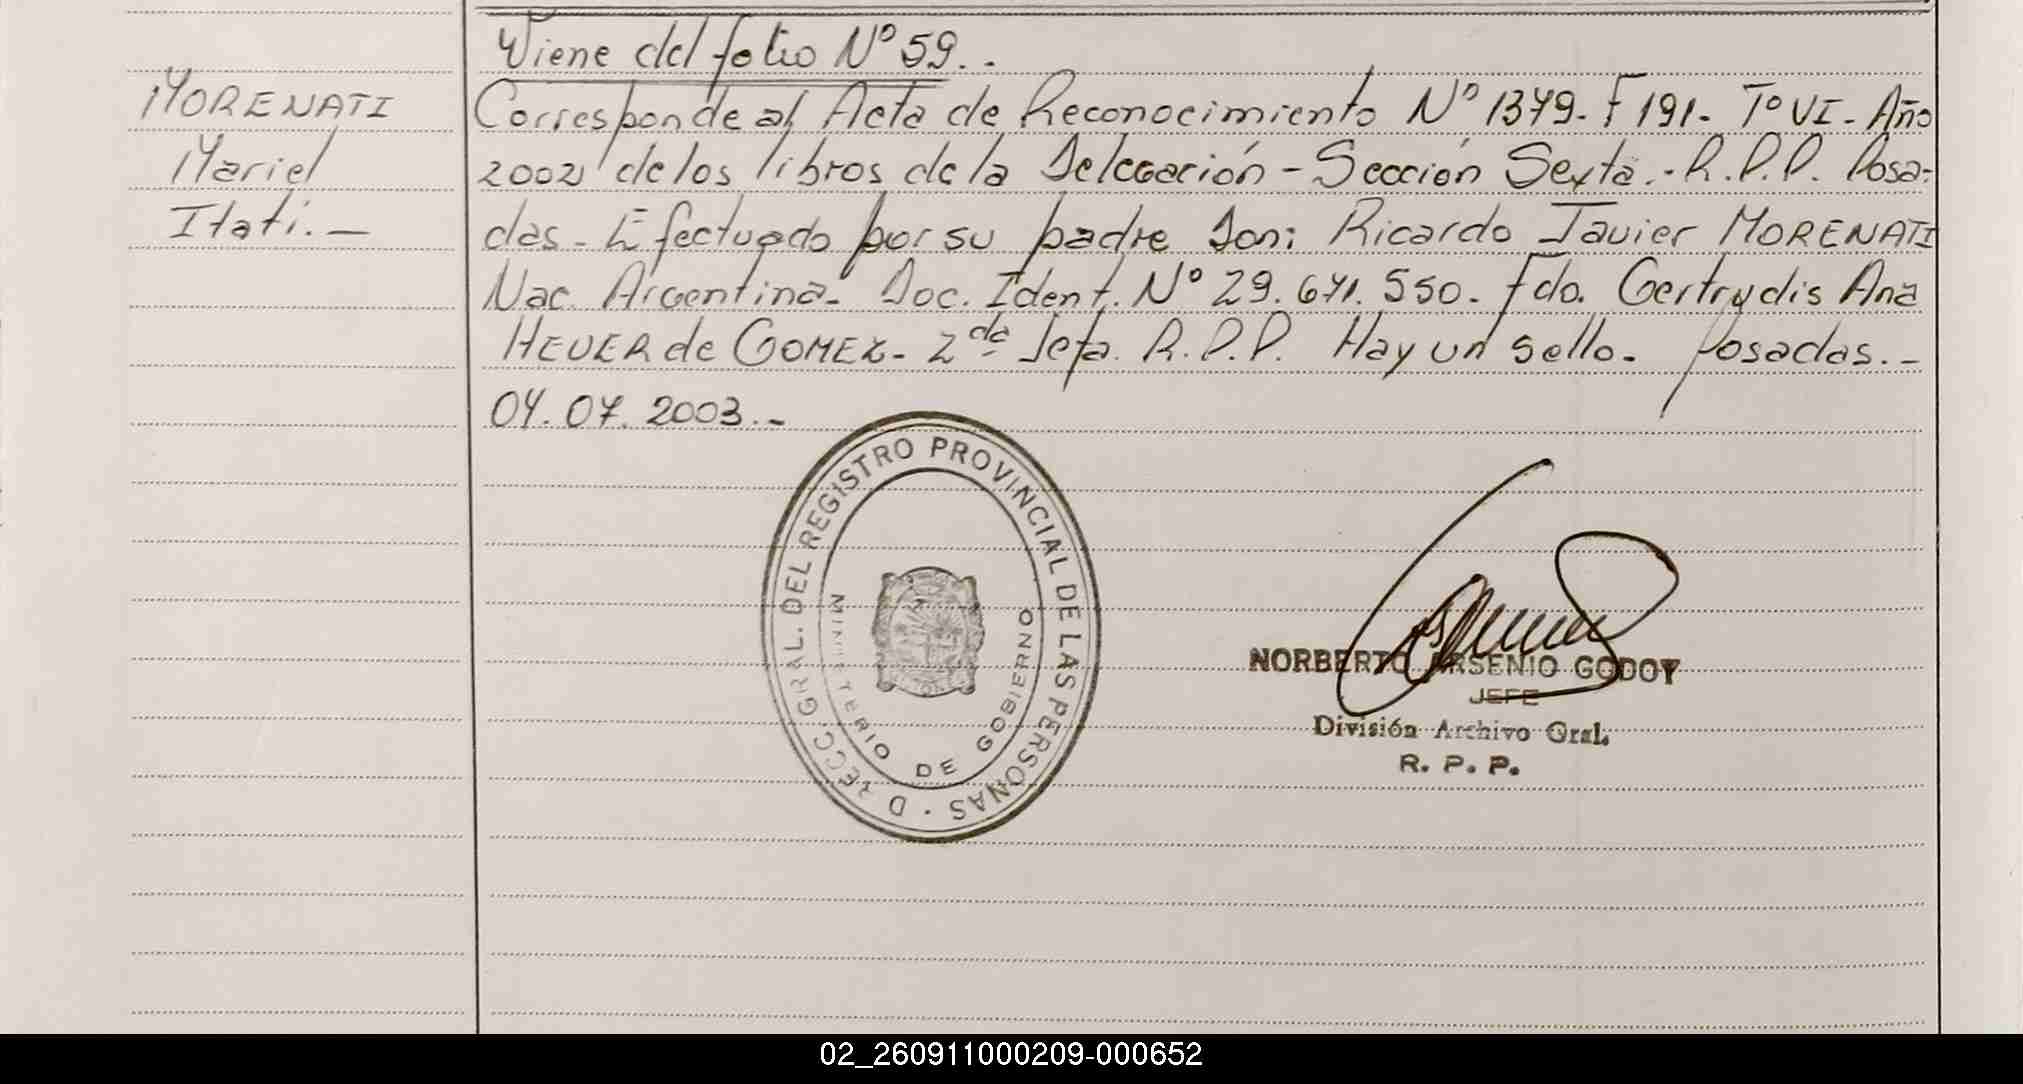 Viene del folio Nº 59..
MORENATI
Mariel
Itatí.—
Corresponde al Acta de Reconocimiento Nº 1379. F 191. Tº VI. Año
2002 de los libros de la Delegación - Sección Sexta.- R.P.P. Posa-
das. Efectuado por su padre Don: Ricardo Javier MORENATI
Nac. Argentina. Doc. Ident. Nº 29.671.550. Fdo. Gertrudis Ana
HEUER de GOMEZ. 2da Jefa. R.P.P. Hay un sello. Posadas.-
04.07.2003.-
DIRECC. GRAL. DEL REGISTRO PROVINCIAL DE LAS PERSONAS
MINISTERIO DE GOBIERNO
NORBERTO ARSENIO GODOY
JEFE
División Archivo Gral.
R. P. P.
02_260911000209-000652